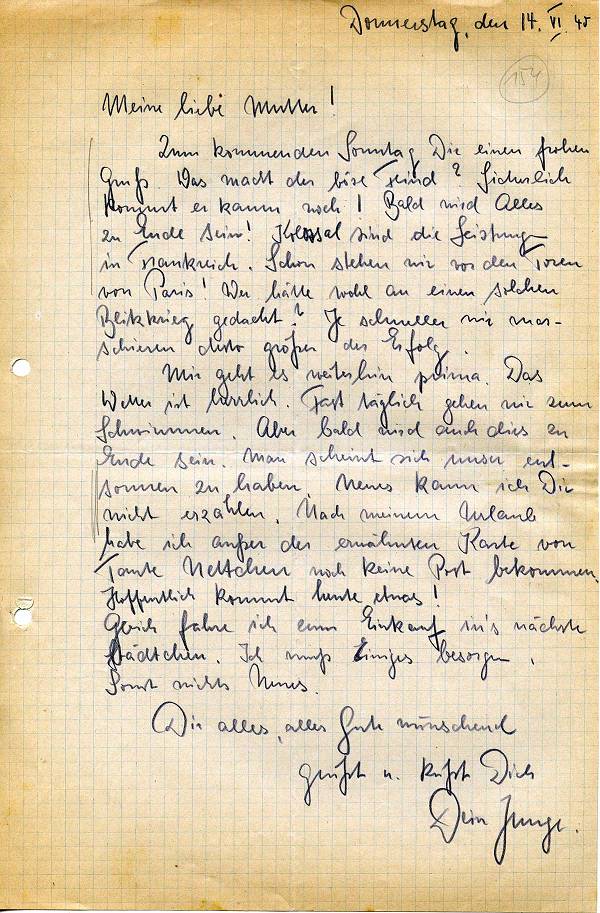 Donnerstag, den 14. VI. 40
154
Meine liebe Mutter!
Zum kommenden Sonntag Dir einen frohen
Gruß. Was macht der böse Feind? Sicherlich
kommt er kaum noch! Bald wird Alles
zu Ende sein! Kolossal sind die Leistungen
in Frankreich. Schon stehen wir vor den Toren
von Paris! Wer hätte wohl an einen solchen
Blitzkrieg gedacht? Je schneller wir mar-
schieren desto größer der Erfolg.
Mir geht es weiterhin prima. Das
Wetter ist herrlich. Fast täglich gehen wir zum
Schwimmen. Aber bald wird auch dies zu
Ende sein. Man scheint sich unser ent-
sonnen zu haben. Neues kann ich Dir
nicht erzählen. Nach meinem Urlaub
habe ich außer der erwähnten Karte von
Tante Nettchen noch keine Post bekommen.
Hoffentlich kommt heute etwas!
Gleich fahre ich zum Einkauf in's nächste
Städtchen. Ich muß Einiges besorgen.
Sonst nichts Neues.
Dir alles, alles Gute wünschend
grüßt u. küßt Dich
Dein Junge.